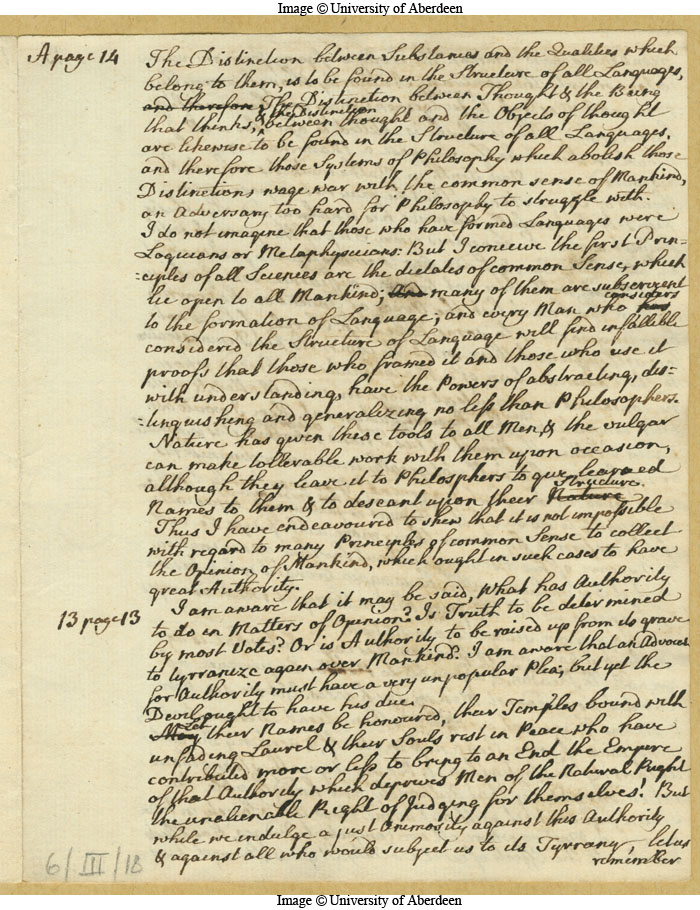 Image © University of Aberdeen
A page 14
The Distinction between Substances and the Qualities which
belong to them, is to be found in the Structure of all Languages,
and therefore The Distinction between Thought & the Being
that thinks, & the Distinction between thought and the Objects of thought
are likewise to be found in the Structure of all Languages,
and therefore those Systems of Philosophy which abolish those
Distinctions wage war with the common sense of Mankind,
an Adversary too hard for Philosophy to struggle with.
I do not imagine that those who have formed Languages were
Logicians or Metaphysicians: But I conceive the first Prin=
=ciples of all Sciences are the dictates of common Sense, which
lie open to all Mankind; and many of them are subservient
to the formation of Language; and every Man who has considers
considered the Structure of Language will find infallible
proofs that those who framed it and those who use it
with understanding, have the Powers of abstracting, dis=
=tinguishing and generalizing no less than Philosophers.
Nature has given these tools to all Men, & the vulgar
can make tollerable work with them upon occasion,
although they leave it to Philosphers to give learned
Names to them & to descant upon their Nature Structure.
Thus I have endeavoured to shew that it is not impossible
with regard to many Principles of common Sense to collect
the Opinion of Mankind, which ought in such cases to have
great Authority.
13 page 13
I am aware that it may be said, What has Authority
to do in Matters of Opinion? Is Truth to be determined
by most Votes? Or is Authority to be raised up from its grave
to tyrranize again over Mankind? I am aware that an Advocate
for Authority must have a very unpopular Plea; but yet the
Devil ought to have his due.
May Let their Names be honoured, their Temples bound with
unfading Laurel & their Souls rest in Peace who have
contributed more or less to bring to an End the Empire
of that Authority which deprives Men of the Natural Right
the unalienable Right of Judging for themselves! But
while we indulge a just Animosity against this Authority
& against all who would subject us to its Tyrrany, let us
remember
6/III/18
Image © University of Aberdeen